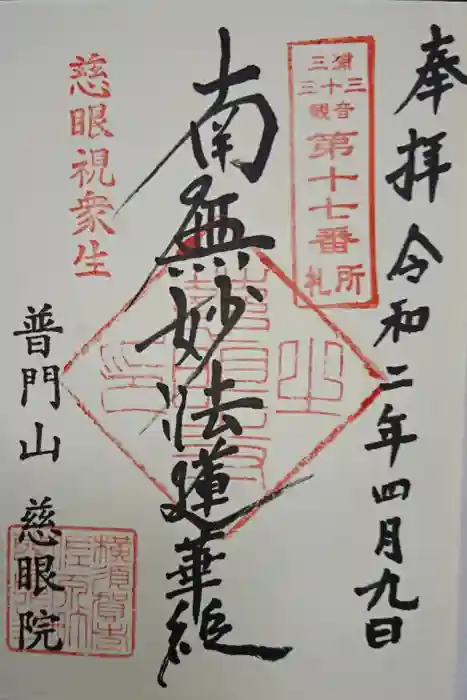 奉拝 令和二年四月九日
三浦三十三観音
第十七番
札所
南無妙法蓮華経
慈眼視衆生
普門山 慈眼院